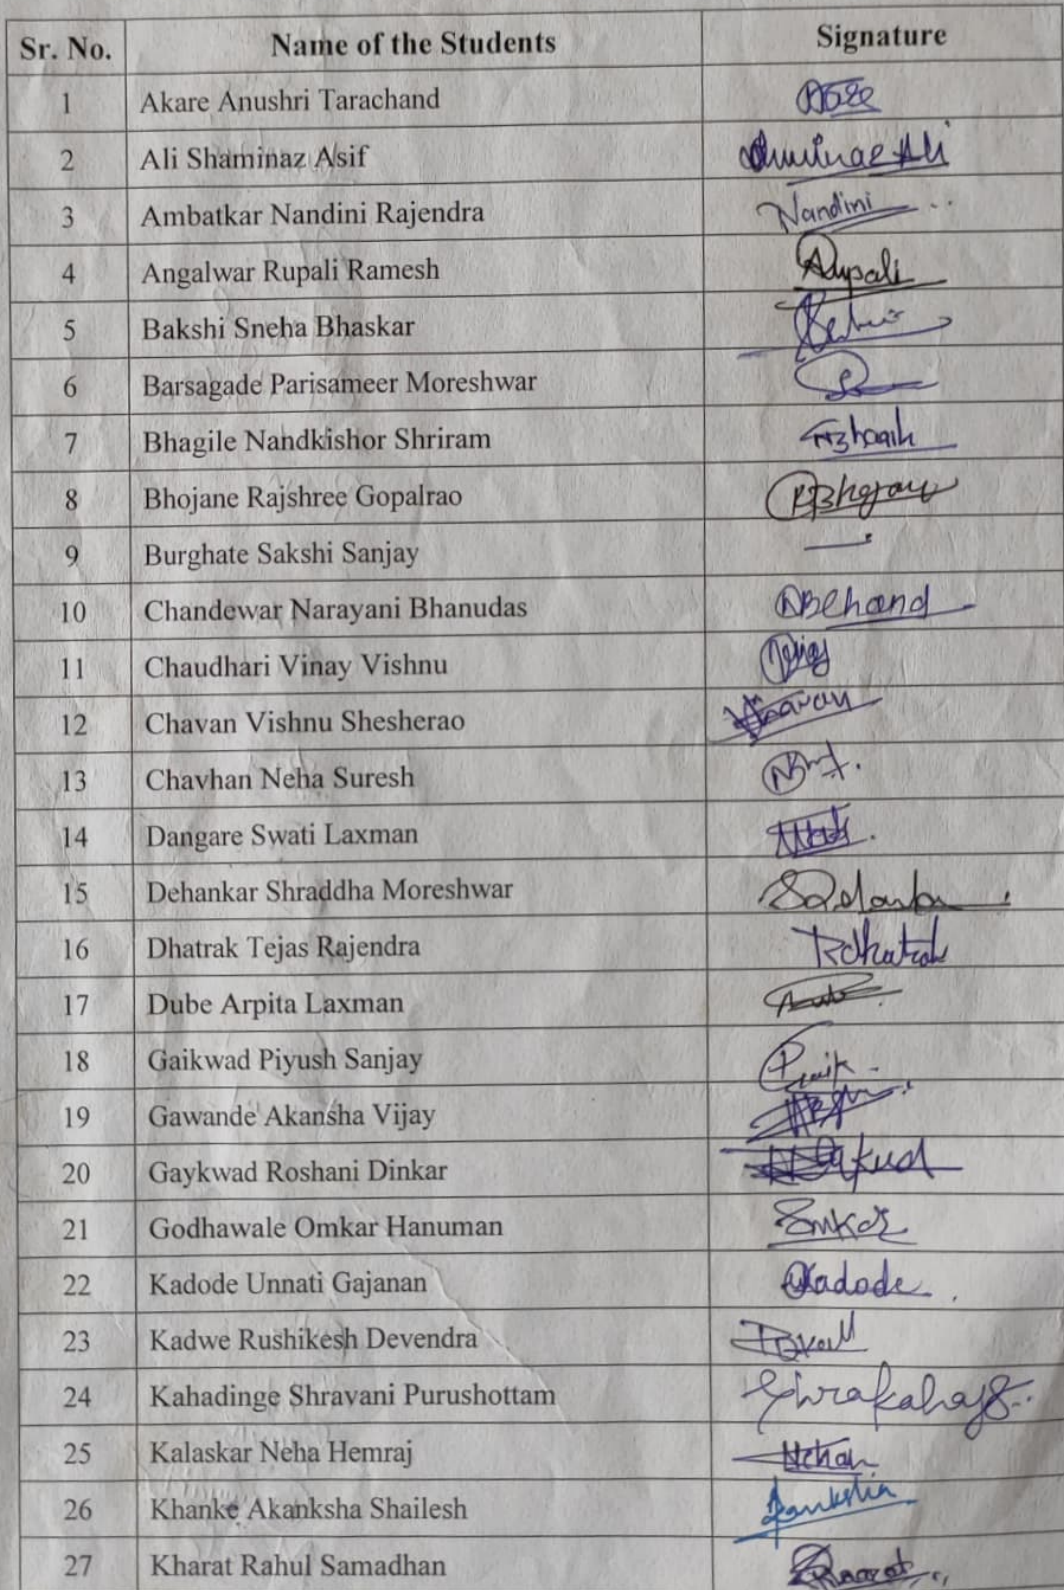 Sr. No. Name of the Students Signature
1 Akare Anushri Tarachand
2 Ali Shaminaz Asif
3 Ambatkar Nandini Rajendra Nandini
4 Angalwar Rupali Ramesh Rupali
5 Bakshi Sneha Bhaskar
6 Barsagade Parisameer Moreshwar
7 Bhagile Nandkishor Shriram
8 Bhojane Rajshree Gopalrao
9 Burghate Sakshi Sanjay
10 Chandewar Narayani Bhanudas
11 Chaudhari Vinay Vishnu
12 Chavan Vishnu Shesherao
13 Chavhan Neha Suresh
14 Dangare Swati Laxman
15 Dehankar Shraddha Moreshwar
16 Dhatrak Tejas Rajendra
17 Dube Arpita Laxman
18 Gaikwad Piyush Sanjay
19 Gawande Akansha Vijay
20 Gaykwad Roshani Dinkar
21 Godhawale Omkar Hanuman Omkar
22 Kadode Unnati Gajanan UKadode
23 Kadwe Rushikesh Devendra
24 Kahadinge Shravani Purushottam
25 Kalaskar Neha Hemraj
26 Khanke Akanksha Shailesh
27 Kharat Rahul Samadhan